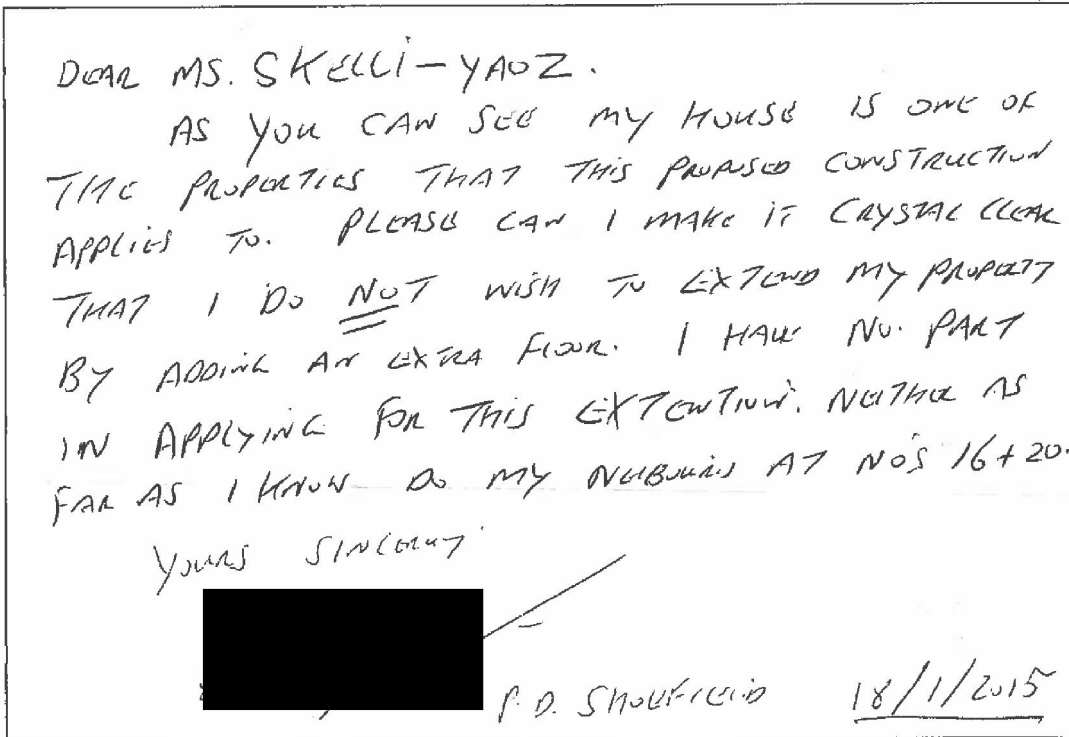 DEAR MS. SKELLI-YAOZ.
AS YOU CAN SEE MY HOUSE IS ONE OF
THE PROPERTIES THAT THIS PROPOSED CONSTRUCTION
APPLIES TO. PLEASE CAN I MAKE IT CRYSTAL CLEAR
THAT I DO NOT WISH TO EXTEND MY PROPERTY
BY ADDING AN EXTRA FLOOR. I HAVE NO. PART
IN APPLYING FOR THIS EXTENTION. NEITHER AS
FAR AS I KNOW DO MY NEIBOURS AT NO'S 16+20.
YOURS SINCERELY
P.D. SHOLEFIELD 18/1/2015